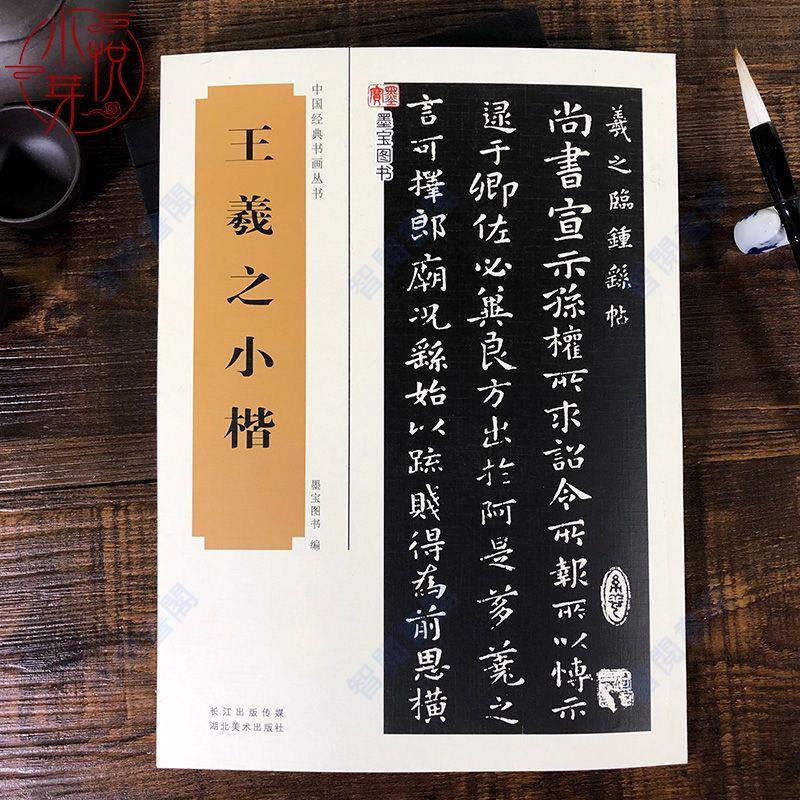 小悦芽
中国经典书画丛书
王羲之小楷
墨宝图书 编
长江出版传媒
湖北美术出版社
墨宝
墨宝图书
羲之臨鍾繇帖
尚書宣示孫權所求詔令所報所以博示
逮于卿佐必冀良方出於阿是芻蕘之
言可擇郎廟況繇始以疏賤得為前思橫
智閱書閣